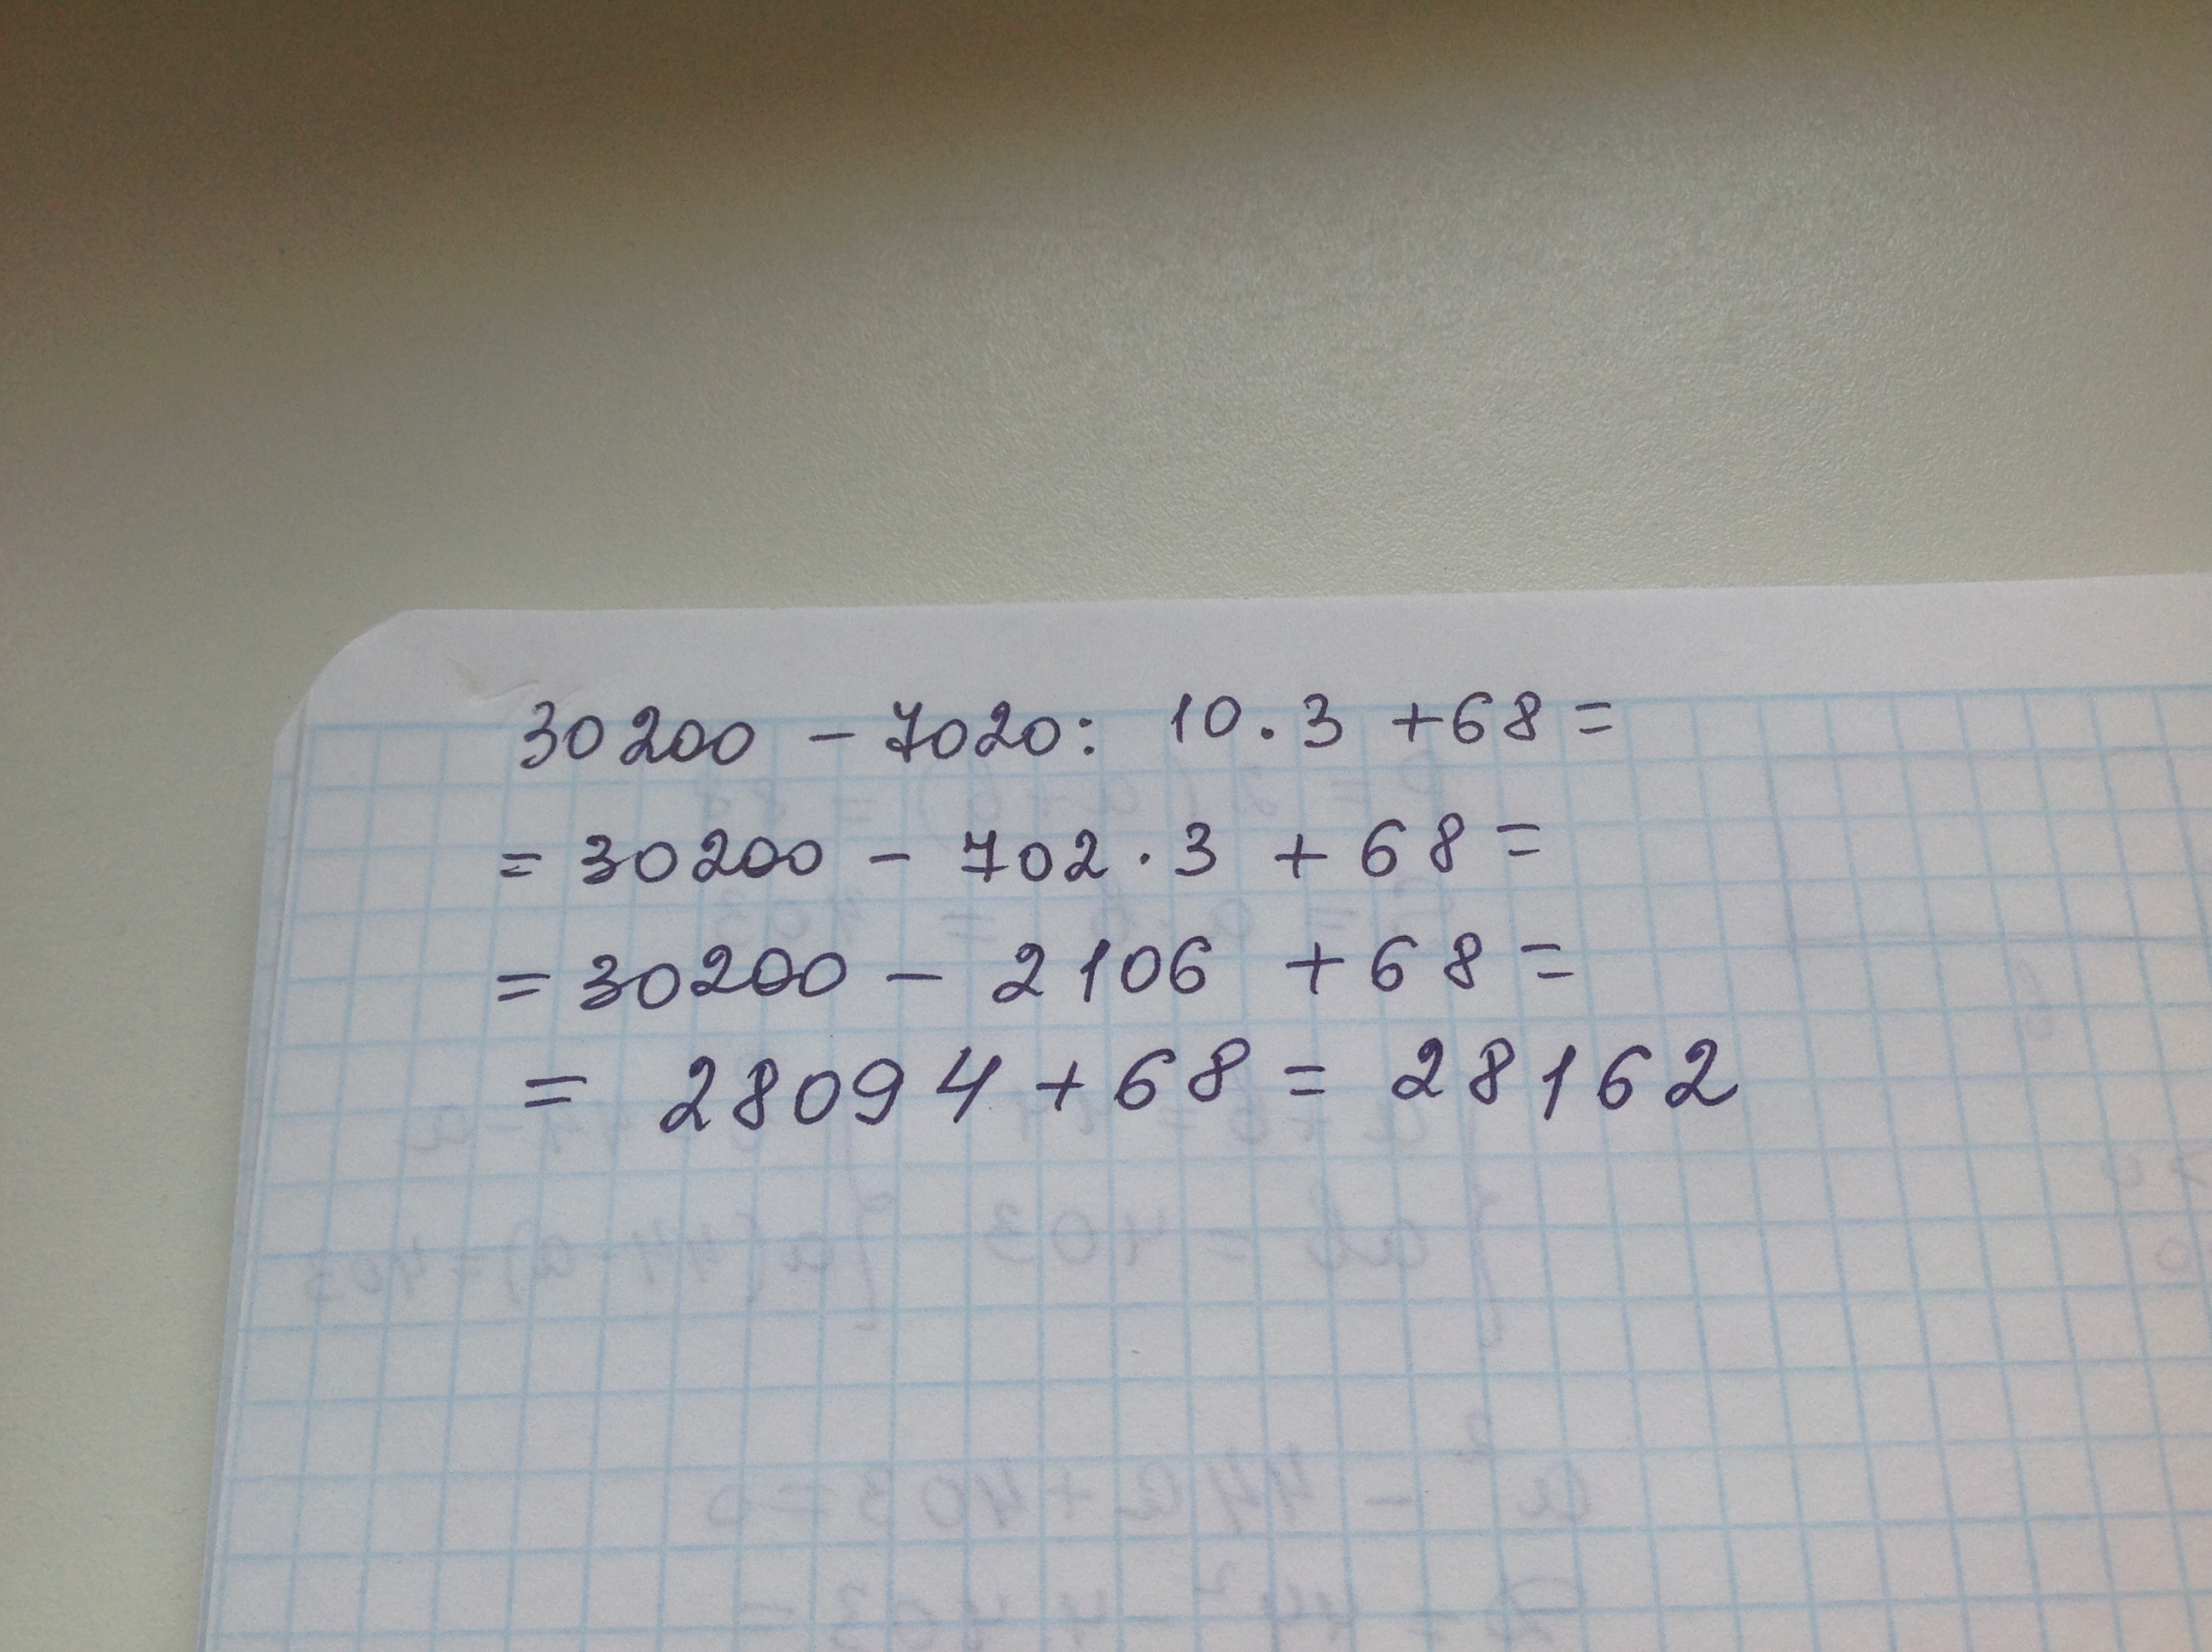 30200 - 7020: 10 · 3 + 68 =
= 30200 - 702 · 3 + 68 =
= 30200 - 2106 + 68 =
= 28094 + 68 = 28162